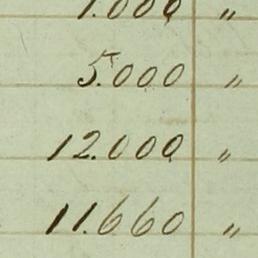 1.000 "
5.000 "
12.000 "
11.660 "